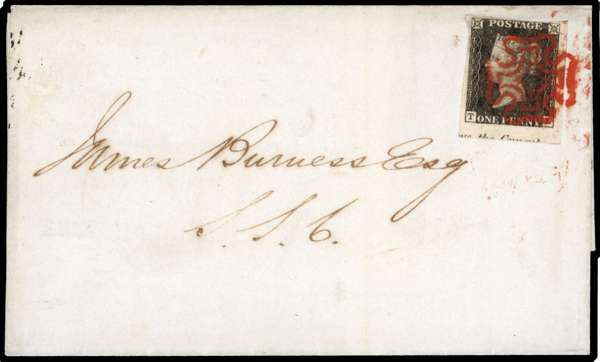 POSTAGE
ONE PENNY
James Burness Esq
S. S. C.